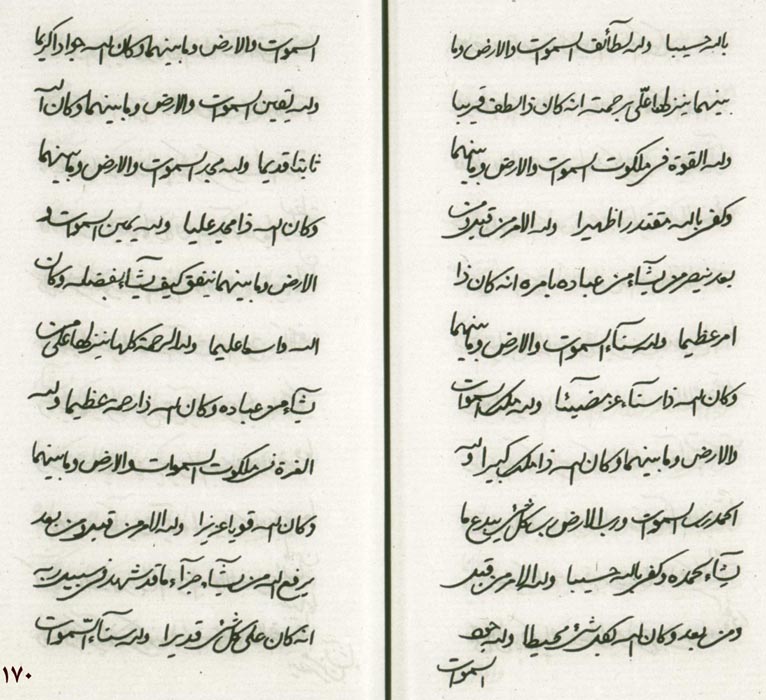 بالله حسيبا ولله لطائف السموات والارض وما
بينهما ينزلها على برحمته انه كان ذا لطف قريبا
ولله القوة في ملكوت السموات والارض وما بينهما
وكفى بالله مقتدرا ظهيرا ولله الامر من قبل ومن
بعد ينصر من يشاء من عباده بامره انه كان ذا
امر عظيما ولله سناء السموات والارض وما بينهما
وكان الله ذا سناء عز مضيئا ولله ملك السموات
والارض وما بينهما وكان الله ذا ملك كبيرا ولله
الحمد رب السموات ورب الارض رب كل شئ يبدع ما
يشاء بحمده وكفى بالله حسيبا ولله الامر من قبل
ومن بعد وكان الله بكل شئ محيطا ولله
السموات
السموات والارض وما بينهما وكان الله جوادا كريما
ولله يقين السموات والارض وما بينهما وكان الله
ثابتا قديما ولله مجد السموات والارض وما بينهما
وكان الله ذا مجد عليا ولله يمين السموات و
الارض وما بينهما ينفق كيف يشاء بفضله وكان
الله واسعا عليما ولله الرحمة كلها ينزلها على من
يشاء من عباده وكان الله ذا رحمة عظيما ولله
العزة في ملكوت السموات والارض وما بينهما
وكان الله قويا عزيزا ولله الامر من قبل ومن بعد
يرفع الله من يشاء جزاء ما قد شهد في سبيل ربه
انه كان على كل شئ قديرا ولله سناء السموات
١٧٠